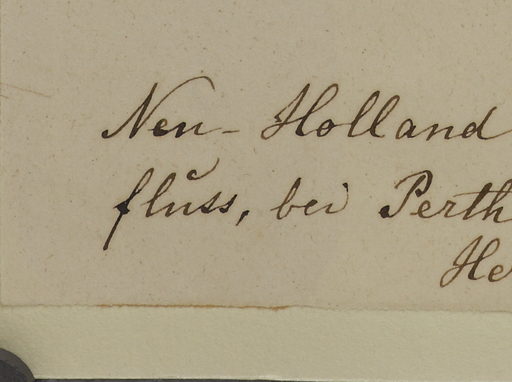 Neu-Holland
fluss, bei Perth
He